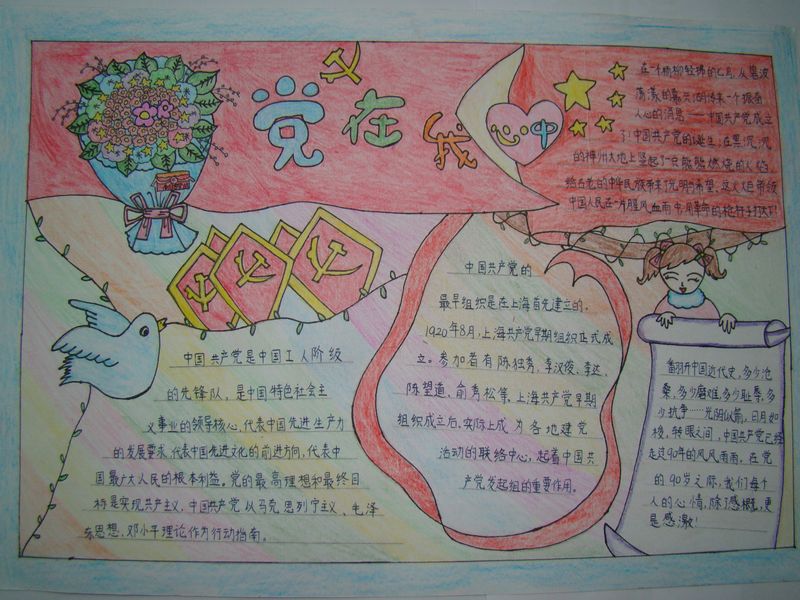 党在我心中
在一个杨柳轻拂的七月，从碧波
荡漾的嘉兴湖传来一个振奋
人心的消息——中国共产党成立
了！中国共产党的诞生，在黑沉沉
的神州大地上竖起了一只熊熊燃烧的火焰
给古老的中华民族带来了光明与希望，这火炬带领
中国人民在一片腥风血雨中，用革命的枪杆子打天下！
中国共产党是中国工人阶级
的先锋队，是中国特色社会主
义事业的领导核心，代表中国先进生产力
的发展要求，代表中国先进文化的前进方向，代表中
国最广大人民的根本利益。党的最高理想和最终目
标是实现共产主义，中国共产党以马克思列宁主义、毛泽
东思想，邓小平理论作为行动指南。
中国共产党的
最早组织是在上海首先建立的。
1920年8月，上海共产党早期组织正式成
立。参加者有陈独秀，李汉俊、李达，
陈望道、俞秀松等，上海共产党早期
组织成立后，实际上成为各地建党
活动的联络中心，起着中国共
产党发起组的重要作用。
翻开中国近代史，多少沧
桑，多少磨难，多少耻辱，多
少抗争……光阴似箭，日月如
梭，转眼之间，中国共产党已经
走过90年的风风雨雨。在党
的90岁之际，我们每个
人的心情，除了感慨，更
是感激！